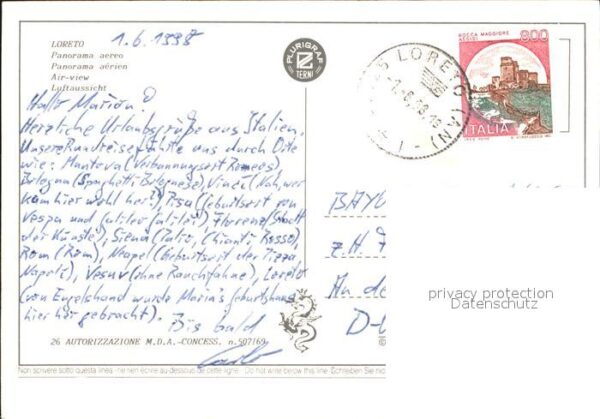 LORETO
1.6.1998
Panorama aereo
Panorama aérien
Air-view
Luftaussicht
PLURIGRAF
TERNI
LORETO (AN)
ROCCA MAGGIORE
ASSISI
800
ITALIA
Hallo Marion!
Herzliche Urlaubsgrüße aus Italien.
Unsere Rundreise führte uns durch Orte
wie: Mantova (Verbannungsort Romeos)
Bologna (Spaghetti Bolognese), Vinci (Nah, wer
kam hier wohl her?), Pisa (Geburtsort von
Vespa und Galileo Galilei), Florenz (Stadt
der Künste), Siena (Palio, Chianti Rosso),
Rom (Rom), Neapel (Geburtsort der Pizza
Napoli), Vesuv (ohne Rauchfahne), Loreto
(von Engelshand wurde Maria's Geburtshaus
hier her gebracht). Bis bald
BAYE
z.H. F
An de
D-
privacy protection
Datenschutz
26 AUTORIZZAZIONE M.D.A.-CONCESS. n.507/69
Non scrivere sotto questa linea - ne rien écrire au-dessous de cette ligne - Do not write below this line - Schreiben Sie nic